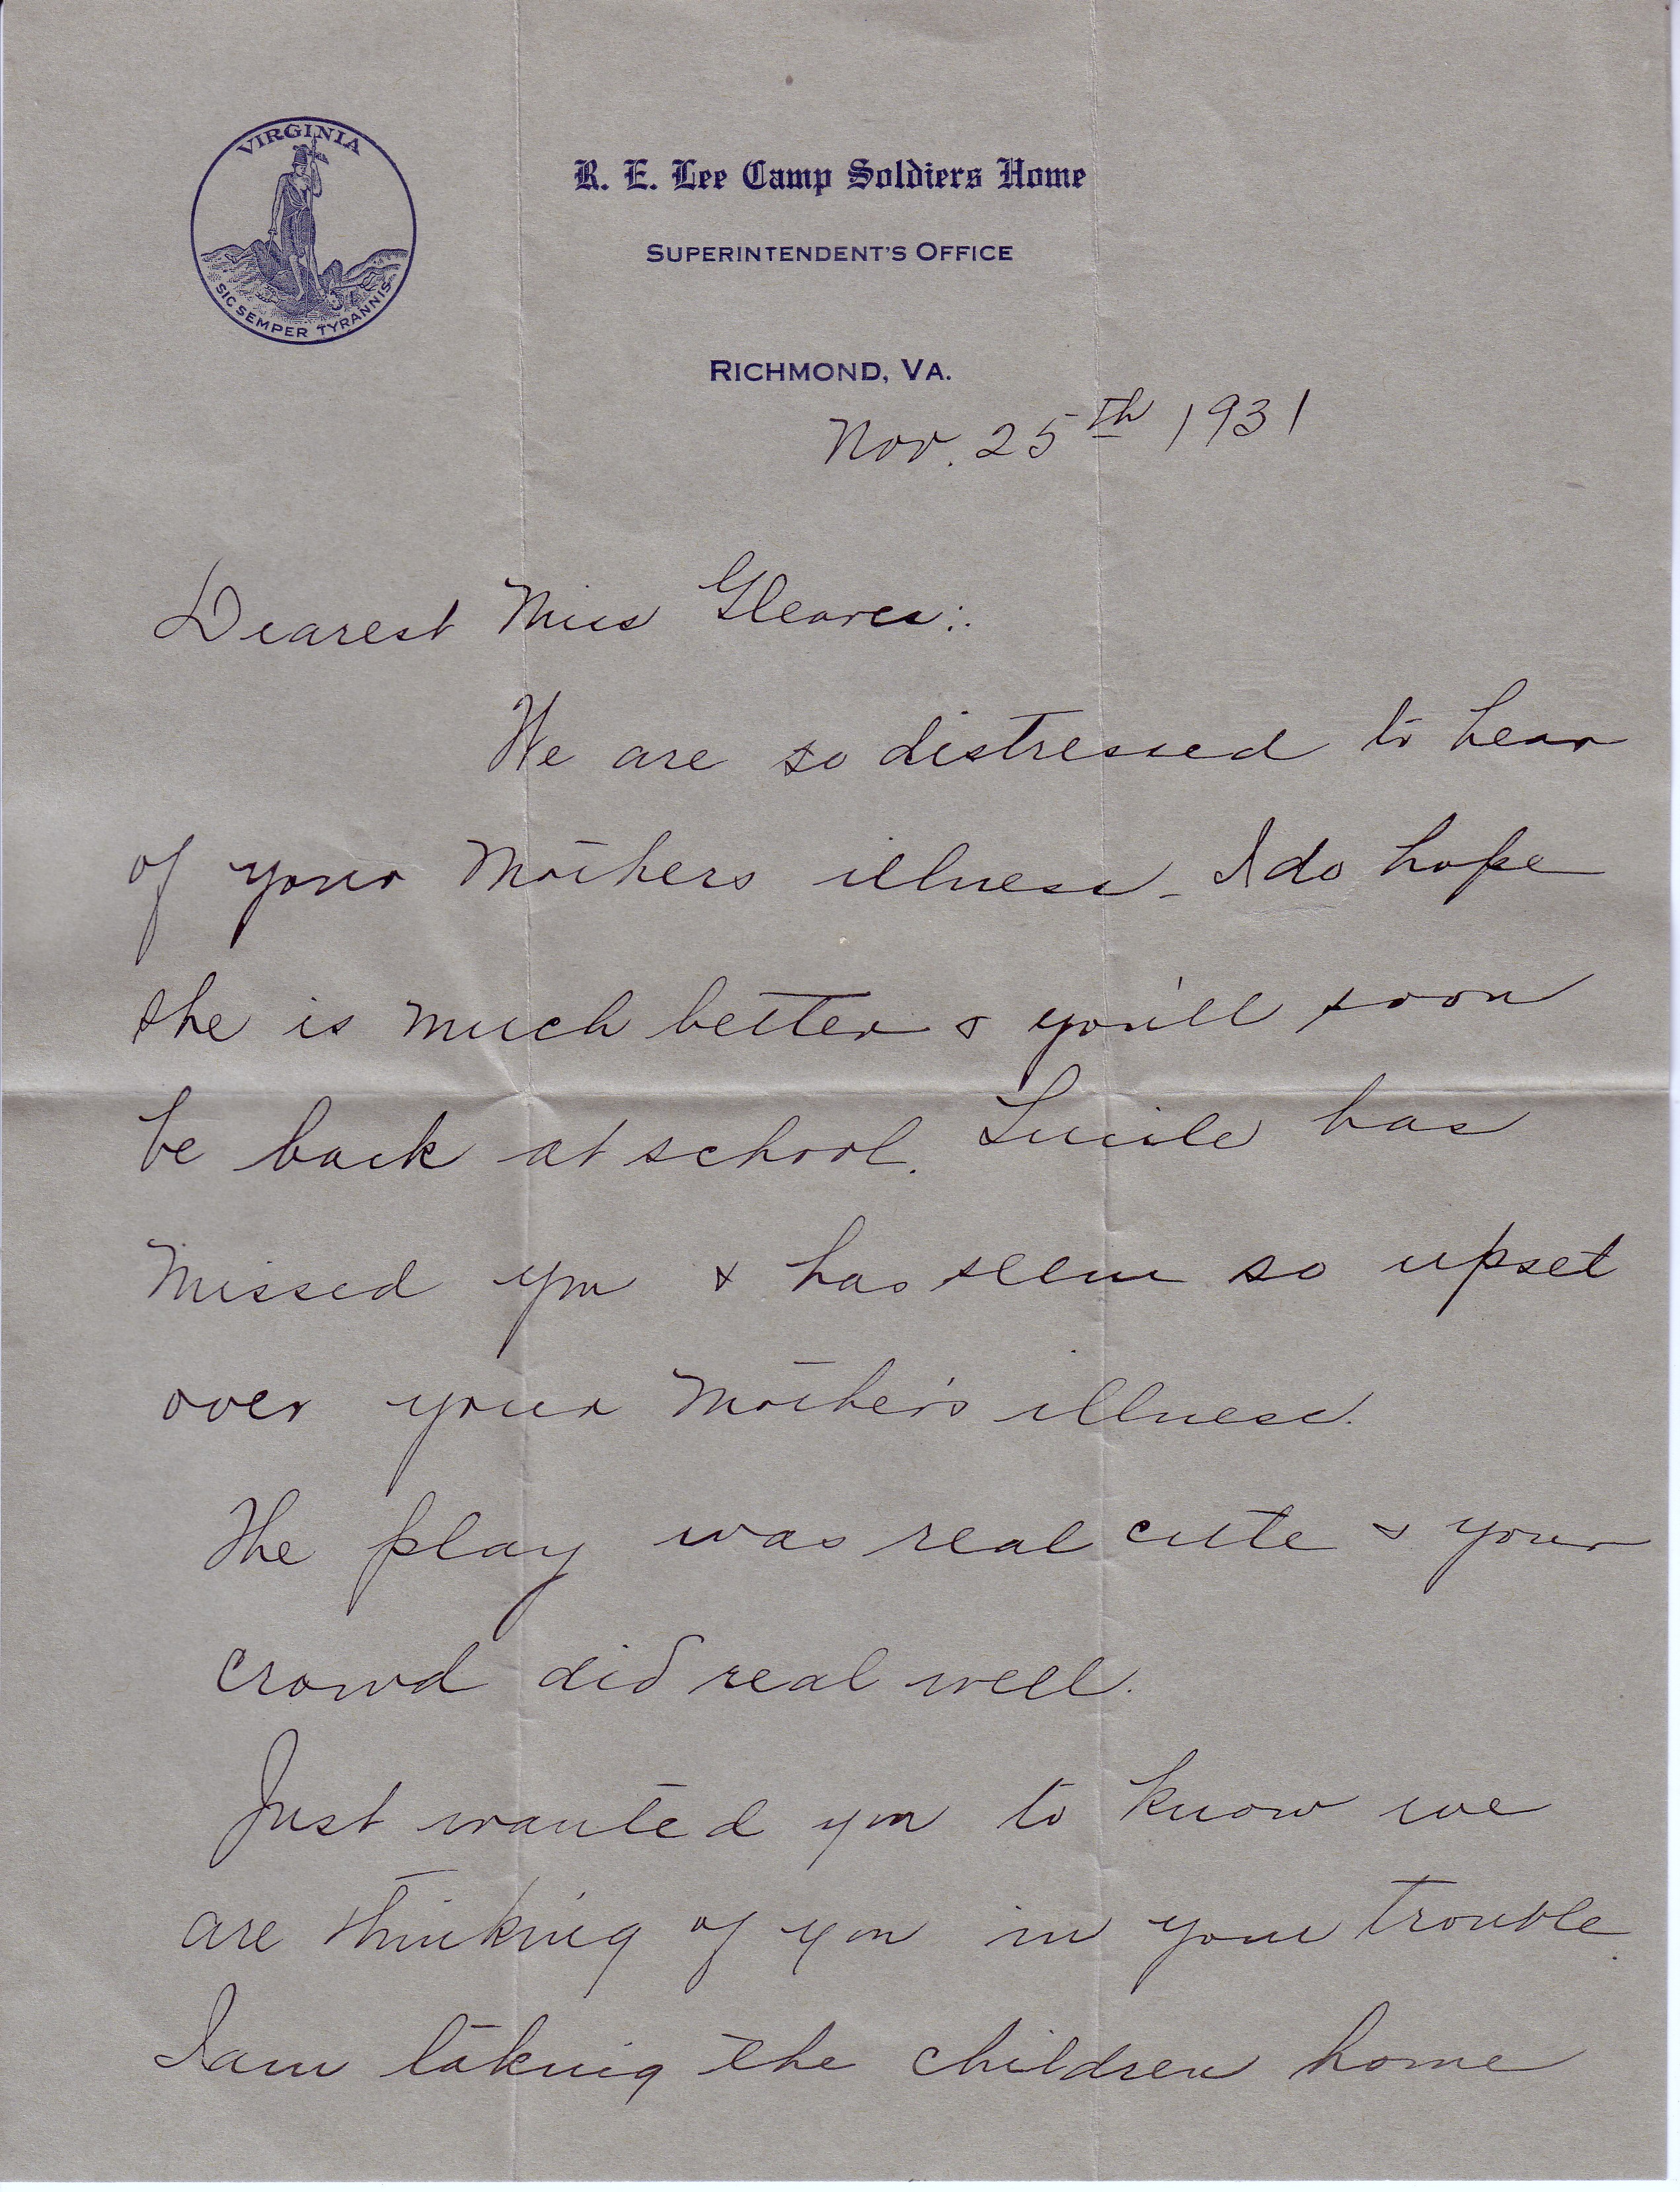 VIRGINIA
SIC SEMPER TYRANNIS
R. E. Lee Camp Soldiers Home
SUPERINTENDENT'S OFFICE
RICHMOND, VA.
Nov. 25th 1931
Dearest Miss Gleaves:
We are so distressed to hear
of your Mothers illness - I do hope
she is much better & you'll soon
be back at school. Lucile has
missed you & has seem so upset
over your Mother's illness.
The play was real cute & your
crowd did real well.
Just wanted you to know we
are thinking of you in your trouble.
I am taking the children home